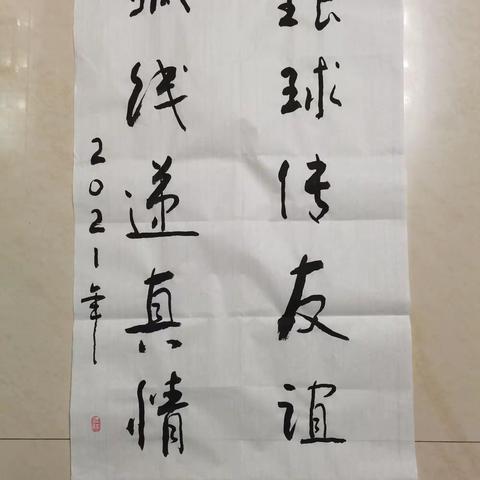 银球传友谊
线递真情
2021年